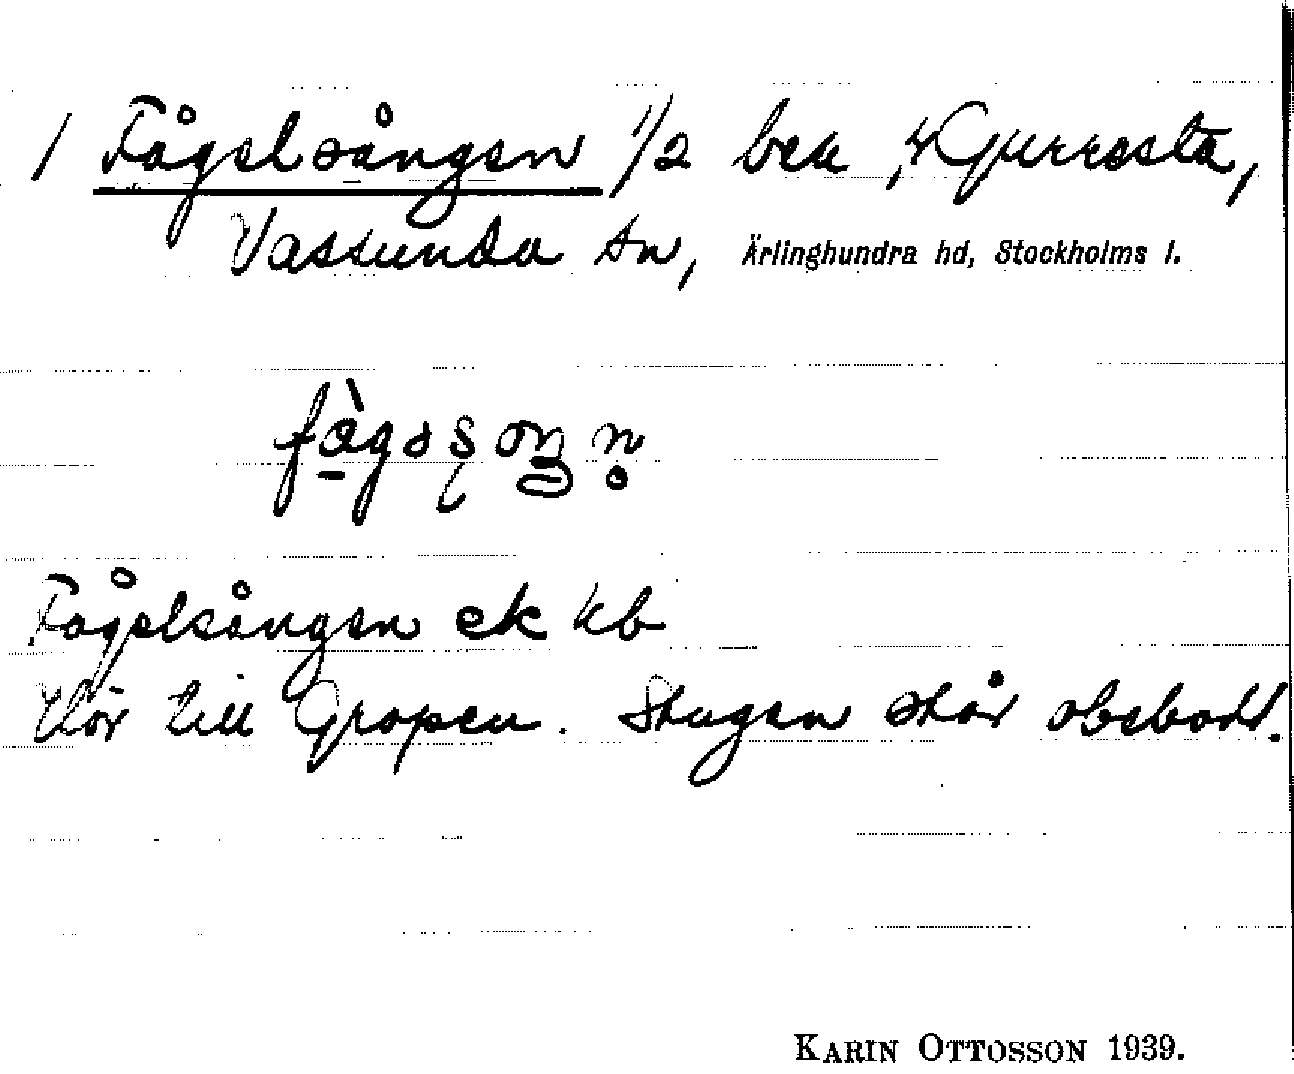 1 Fågelsången 1/2 beb, Gurresta,
Vassunda sn, Ärlinghundra hd, Stockholms l.
Fågelsången ek kb
Hör till Gropen. Stugan står obebodd.
KARIN OTTOSSON 1939.